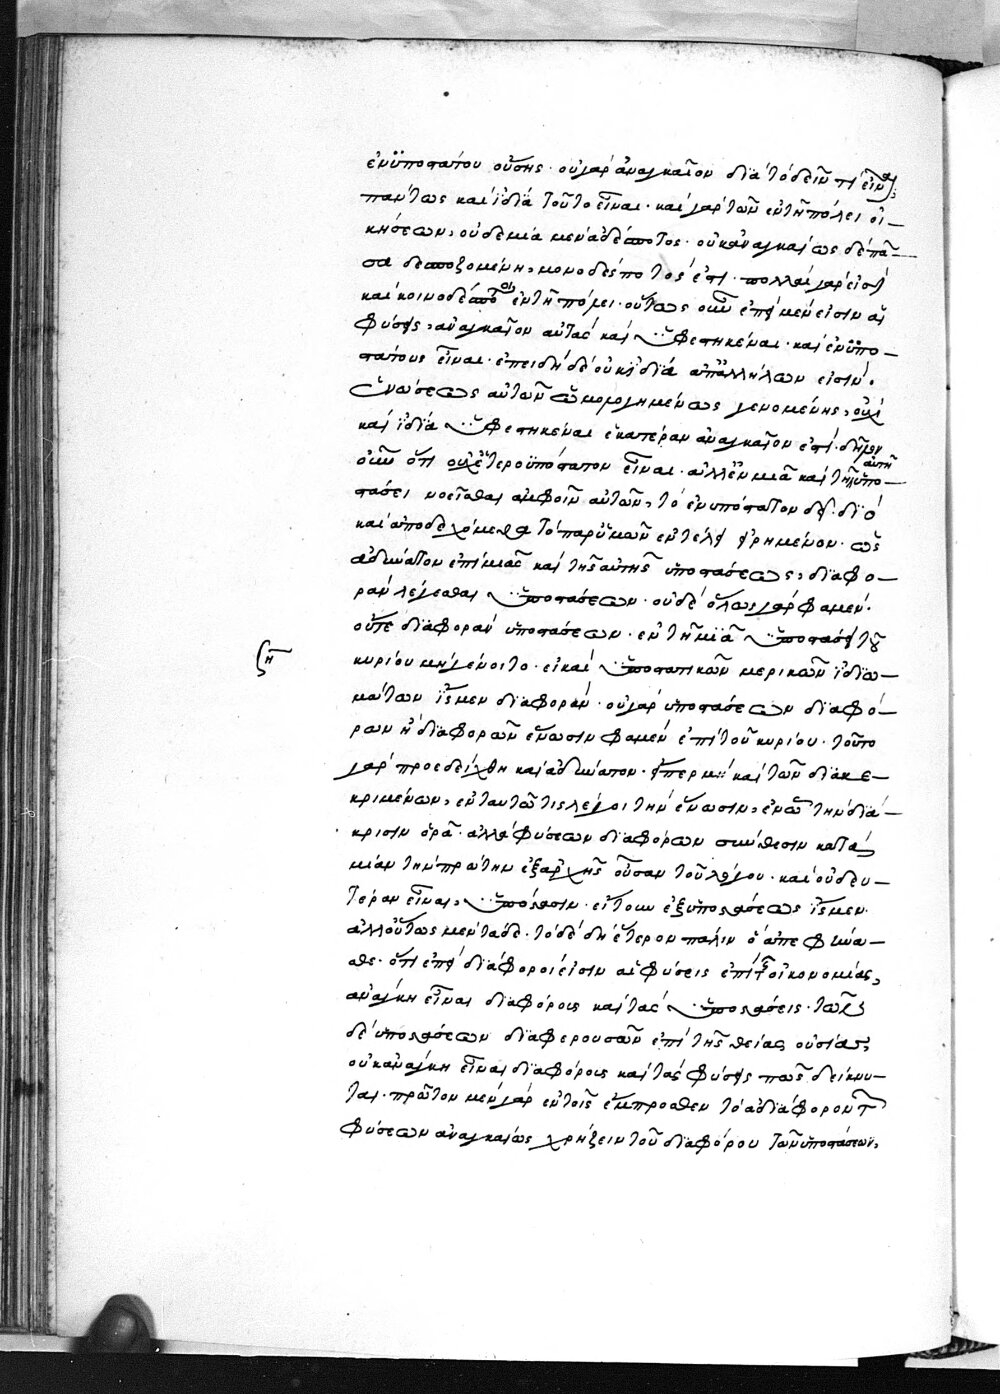 ἐνϋποστάτου οὔσης· οὐ γὰρ ἀναγκαῖον διὰ τὸ δεῖν τι εἶναι
πάντως καὶ ἰδίᾳ τοῦτο εἶναι· καὶ γὰρ τῶν ἐν τῇ πόλει οἰ-
κήσεων, οὐδεμία μὲν ἀδέσποτος· οὐκ ἀναγκαίως δὲ πᾶ-
σα δεσποζομένη, μονοδέσποτός ἐστι· πολλαὶ γάρ εἰσι
καὶ κοινοδέσποτοι ἐν τῇ πόλει· οὕτως οὖν ἐπεὶ μέν εἰσιν αἱ
φύσεις, ἀναγκαῖον αὐτὰς καὶ ὑφεστηκέναι· καὶ ἐνϋπο-
στάτους εἶναι· ἐπειδὴ δὲ οὐκ ἰδίᾳ ἀπ' ἀλλήλων εἰσίν·
ἑνώσεως αὐτῶν ὡμολογημένως γενομένης, οὐχὶ
καὶ ἰδίᾳ ὑφεστηκέναι ἑκατέραν ἀναγκαῖον ἐστί· δῆλον
οὖν ὅτι οὐχ ἑτεροϋπόστατον εἶναι· ἀλλ' ἐν μιᾷ καὶ τῇ αὐτῇ ὑπο-
στάσει νοεῖσθαι ἀμφοῖν αὐτῶν, τὸ ἐνυπόστατον δεῖ· διὸ
καὶ ἀποδεχόμεθα τὸ παρ' ὑμῶν ἐντελεῖ εἰρημένον· ὡς
ἀδύνατον ἐπὶ μιᾶς καὶ τῆς αὐτῆς ὑποστάσεως, διαφο-
ρὰν λέγεσθαι ὑποστάσεων· οὐδὲ ὅλως γάρ φαμεν·
οὔτε διαφορὰν ὑποστάσεων· ἐν τῇ μιᾷ ὑποστάσει τοῦ
κυρίου μὴ γένοιτο· εἰ καὶ ὑποστατικῶν μερικῶν ἰδιω-
μάτων ἴσμεν διαφοράν· οὐ γὰρ ὑποστάσεων διαφό-
ρων ἢ διαφορῶν ἕνωσιν φαμὲν ἐπὶ τοῦ κυρίου· τοῦτο
γὰρ προεδείχθη καὶ ἀδύνατον· εἴπερ μὴ καὶ τῶν διακε-
κριμένων, ἐν ταυτῷ τις λέγοι τὴν ἕνωσιν, ἐν ᾧ τὴν διά-
κρισιν ὁρᾷ· ἀλλὰ φύσεων διαφόρων σύνθεσιν κατὰ
μίαν τὴν πρώτην ἐξ ἀρχῆς οὖσαν τοῦ λόγου· καὶ οὐ δευ-
τέραν εἶναι, ὑπόστασιν· εἴτουν ἐξ ὑποστάσεως ἴσμεν·
ἀλλ' οὕτως μὲν τάδε· τὸ δὲ δὴ ἕτερον πάλιν ὃ ἀπεφήνα-
σθε· ὅτι ἐπεὶ διάφοροί εἰσιν αἱ φύσεις ἐπὶ τῆς οἰκονομίας,
ἀνάγκη εἶναι διαφόρους καὶ τὰς ὑποστάσεις· τῶν
δὲ ὑποστάσεων διαφερουσῶν ἐπὶ τῆς θείας οὐσίας,
οὐκ ἀνάγκη εἶναι διαφόρους καὶ τὰς φύσεις πῶς δείκνυ-
ται· πρῶτον μὲν γὰρ ἐν τοῖς ἔμπροσθεν τὸ ἀδιάφορον τῶν
φύσεων ἀναγκαίως χρῄζειν τοῦ διαφόρου τῶν ὑποστάσεων,